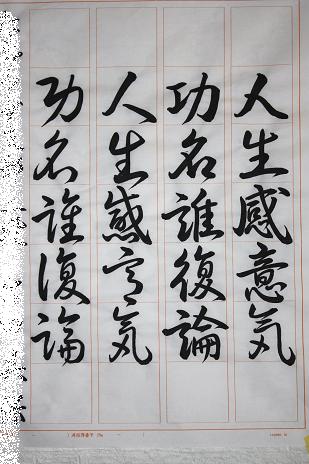 人生感意気
功名誰復論
人生感意気
功名誰復論